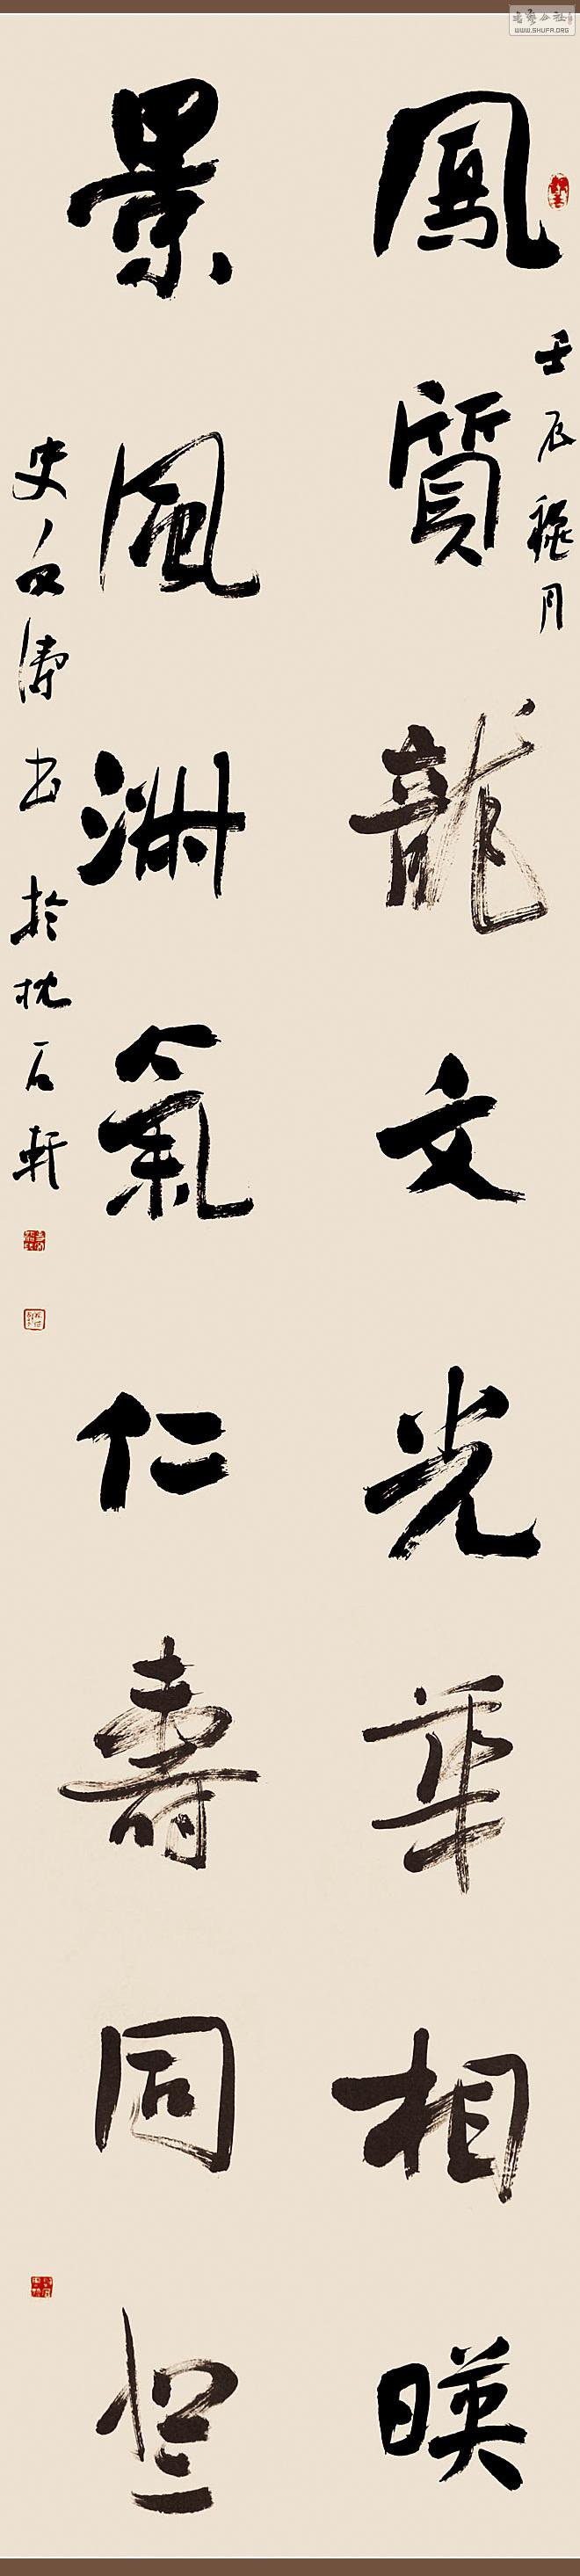 書藝公社
WWW.SHUFA.ORG
壬辰穐月
鳳質龍文光華相暎
景風淑氣仁壽同登
史白濤书於枕石軒